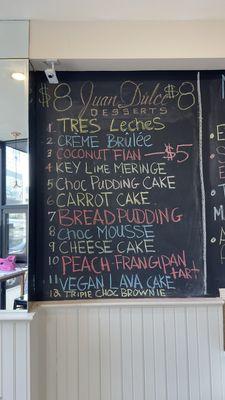 $8 Juan Dulce $8
DESSERTS
1 TRES Leches
2 CRÈME BRÛLÉE
3 COCONUT FlAN — $5
4 KEY LIME MERINGE
5 CHOC PUDDING CAKE
6 CARROT CAKE
7 BREAD PUDDING
8 CHOC MOUSSE
9 CHEESE CAKE
10 PEACH FRANGIPAN
TART
11 VEGAN LAVA CAKE
12 TRIPLE CHOC BROWNIE